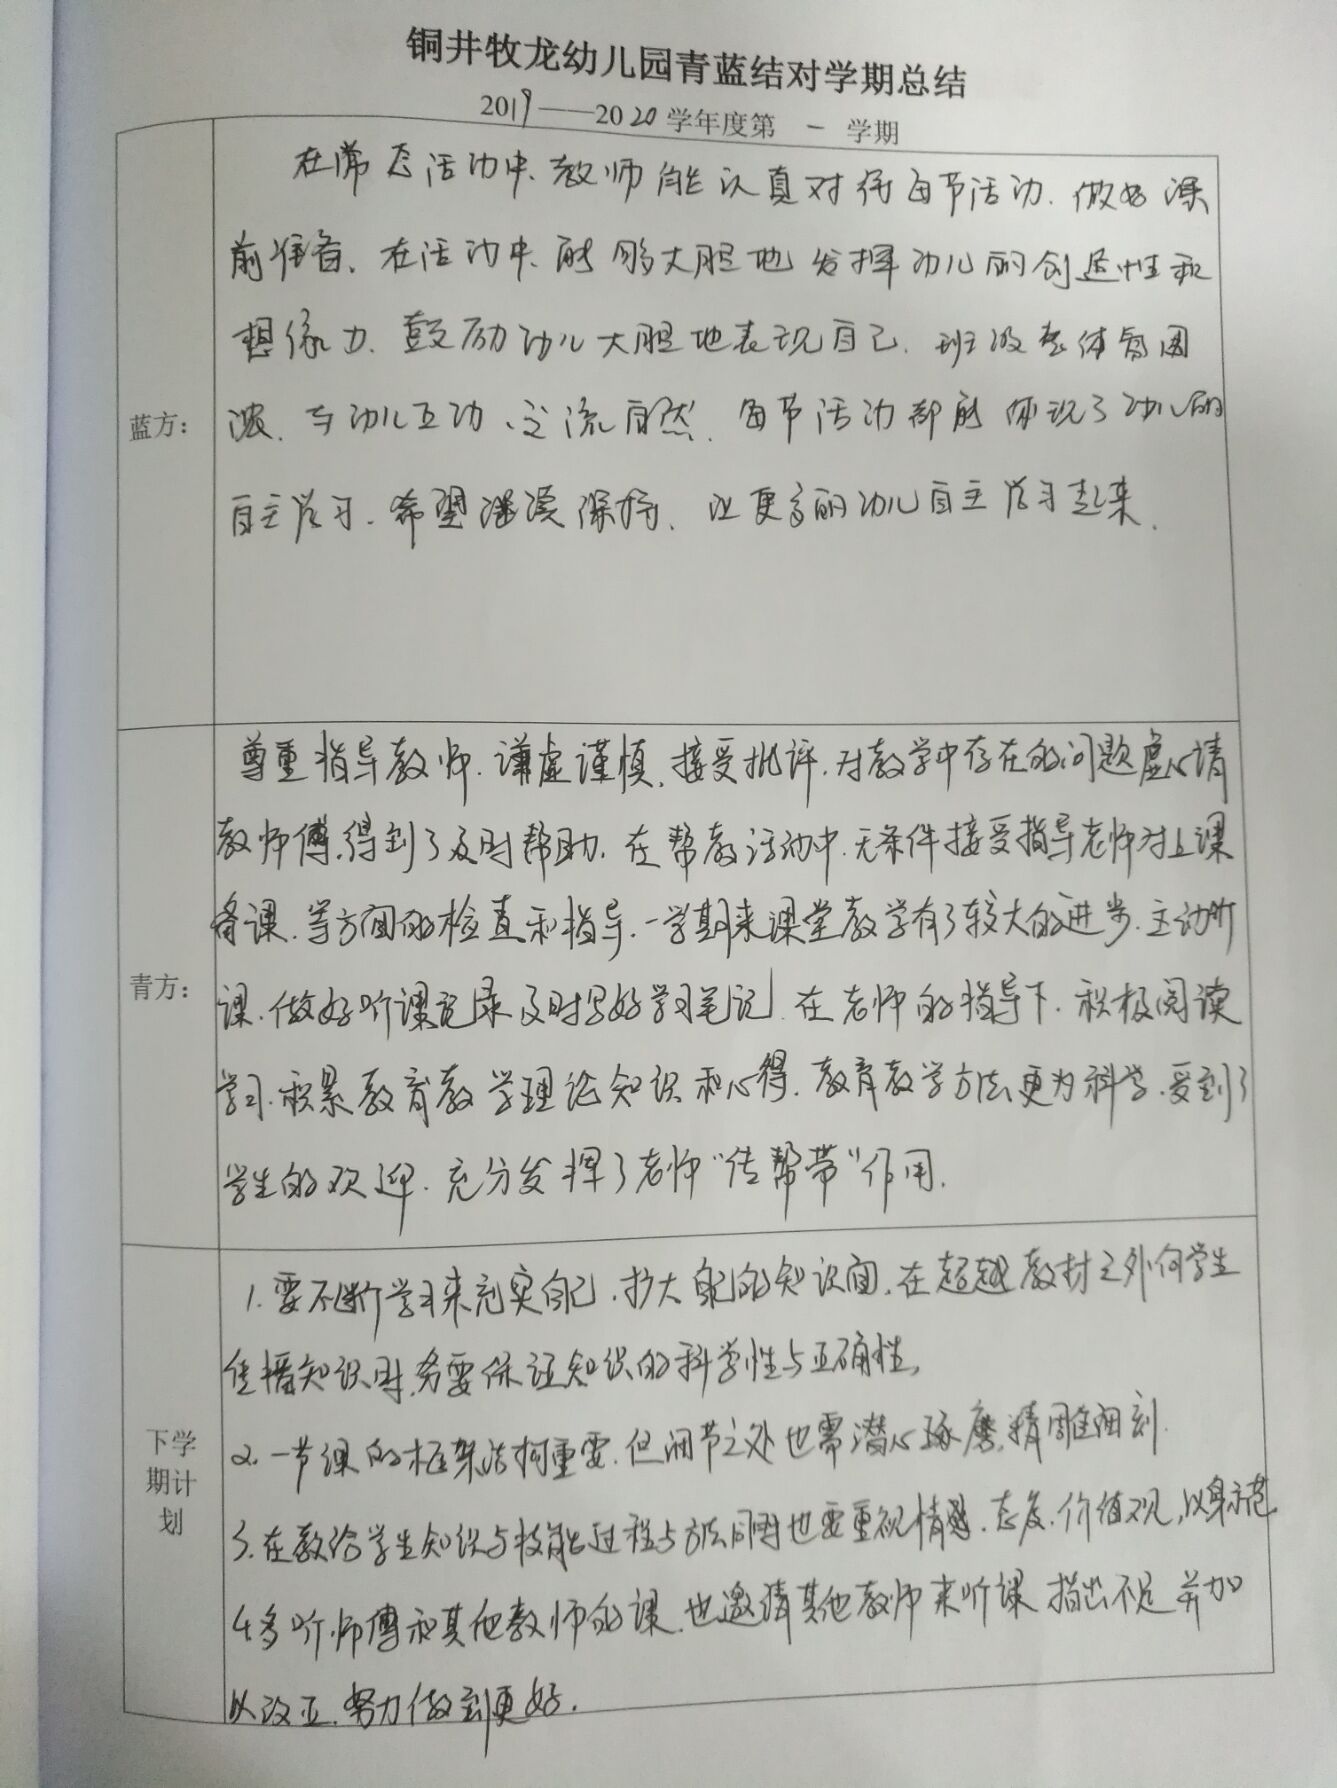 铜井牧龙幼儿园青蓝结对学期总结
2019——2020学年度第一学期
在常态活动中、教师能认真对待每节活动、做好课
前准备、在活动中、能够大胆地发挥幼儿的创造性和
想像力、鼓励幼儿大胆地表现自己、班级整体氛围
浓、与幼儿互动、交流自然、每节活动都能体现了幼儿的
自主学习、希望继续保持、让更多的幼儿自主学习起来.
蓝方：
尊重指导教师、谦虚谨慎、接受批评、对教学中存在的问题虚心请
教师傅、得到了及时帮助、在帮教活动中、无条件接受指导老师对上课
备课、等方面的检查和指导、一学期来课堂教学有了较大的进步、主动听
课、做好听课记录及时写好学习笔记、在老师的指导下、积极阅读
学习、积累教育教学理论知识和心得、教育教学方法更为科学、受到了
学生的欢迎、充分发挥了老师“传帮带”作用.
青方：
1.要不断学习来充实自己、扩大自己的知识面、在超越教材之外向学生
传播知识时、务要保证知识的科学性与正确性、
2.一节课的框架结构重要、但细节之处也需潜心琢磨、精雕细刻.
3.在教给学生知识与技能、过程与方法同时也要重视情感、态度、价值观，以身示范
4.多听师傅和其他教师的课、也邀请其他教师来听课、指出不足并加
以改正、努力做到更好.
下学
期计
划